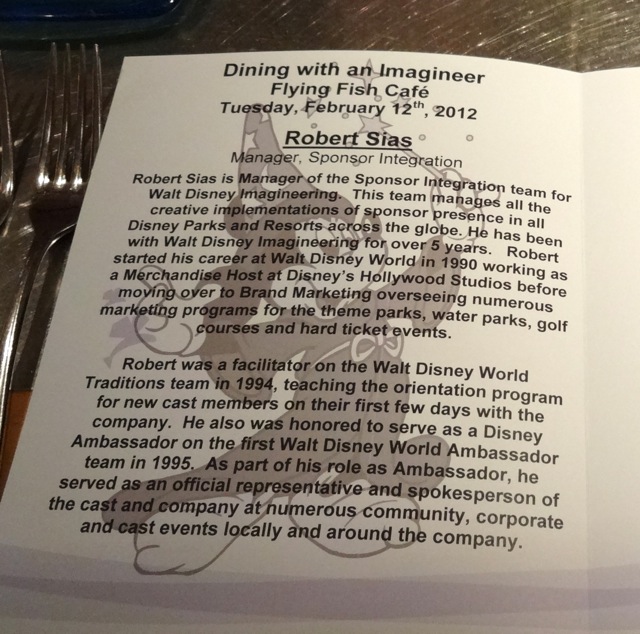 Dining with an Imagineer
Flying Fish Café
Tuesday, February 12th, 2012
Robert Sias
Manager, Sponsor Integration
Robert Sias is Manager of the Sponsor Integration team for
Walt Disney Imagineering. This team manages all the
creative implementations of sponsor presence in all
Disney Parks and Resorts across the globe. He has been
with Walt Disney Imagineering for over 5 years. Robert
started his career at Walt Disney World in 1990 working as
a Merchandise Host at Disney's Hollywood Studios before
moving over to Brand Marketing overseeing numerous
marketing programs for the theme parks, water parks, golf
courses and hard ticket events.
Robert was a facilitator on the Walt Disney World
Traditions team in 1994, teaching the orientation program
for new cast members on their first few days with the
company. He also was honored to serve as a Disney
Ambassador on the first Walt Disney World Ambassador
team in 1995. As part of his role as Ambassador, he
served as an official representative and spokesperson of
the cast and company at numerous community, corporate
and cast events locally and around the company.